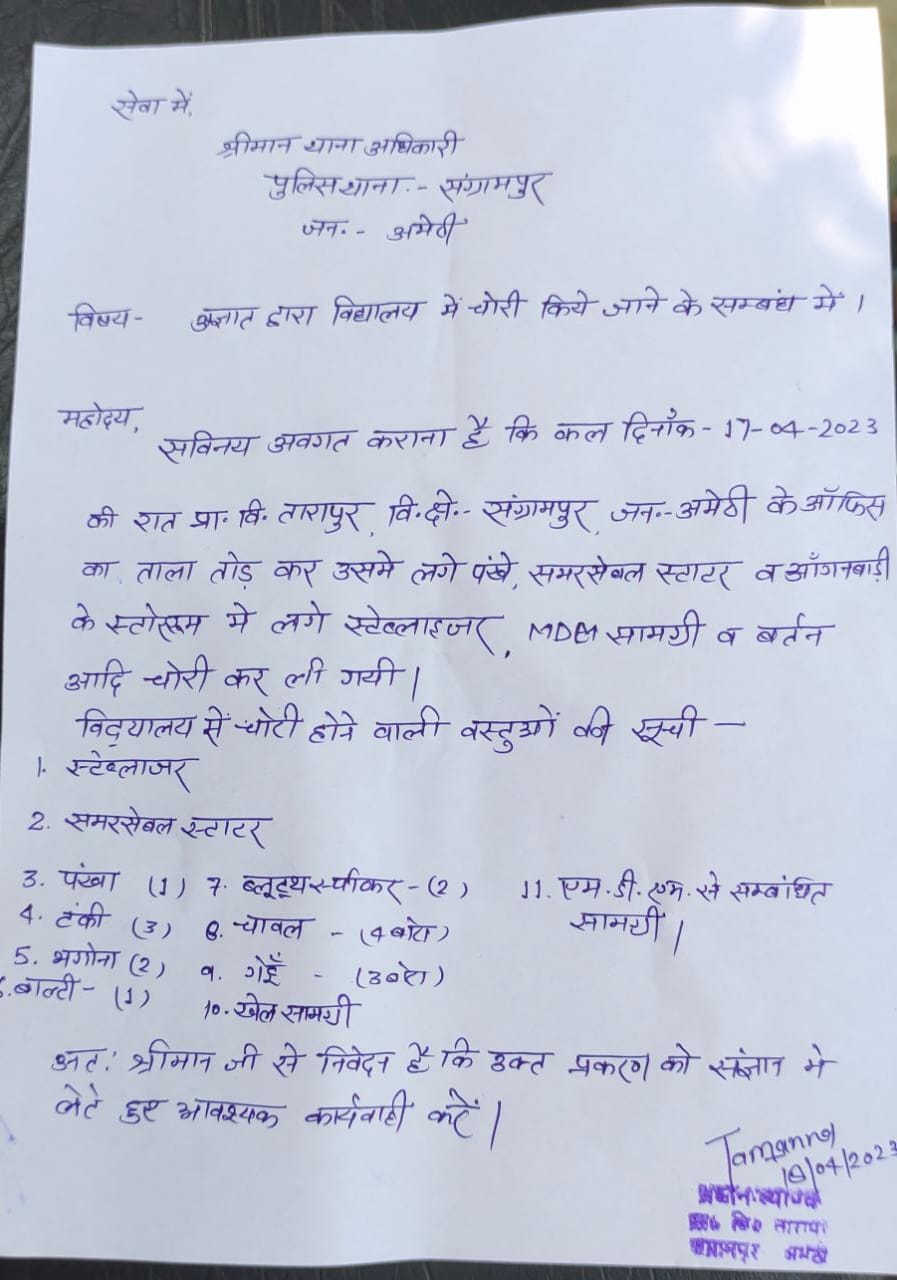 सेवा में,
श्रीमान थाना अधिकारी
पुलिस थाना :- संग्रामपुर
जन.- अमेठी
विषय- अज्ञात द्वारा विद्यालय में चोरी किये जाने के सम्बंध में ।
महोदय,
सविनय अवगत कराना है कि कल दिनाँक - 17-04-2023
की रात प्रा. वि. तारापुर, वि.क्षे.- संग्रामपुर, जन.-अमेठी के ऑफिस
का ताला तोड़ कर उसमे लगे पंखे, समरसेबल स्टाटर व आँगनबाड़ी
के स्टोररूम मे लगे स्टेब्लाइजर, MDM सामग्री व बर्तन
आदि चोरी कर ली गयी |
विद्यालय में चोरी होने वाली वस्तुओं की सूची —
1. स्टेब्लाजर
2. समरसेबल स्टाटर
3. पंखा (1) 7. ब्लूटूथ स्पीकर - (2) 11. एम. डी. एम. से सम्बंधित
4. टंकी (3) 8. चावल - (4 बोरा) सामग्री |
5. भगोना (2) 9. गेहूँ - (3 बोरा)
6. बाल्टी - (1) 10. खेल सामग्री
अत: श्रीमान जी से निवेदन है कि उक्त प्रकरण को संज्ञान मे
लेते हुए आवश्यक कार्यवाही करें |
Tamanna
18/04/2023
अमेठी